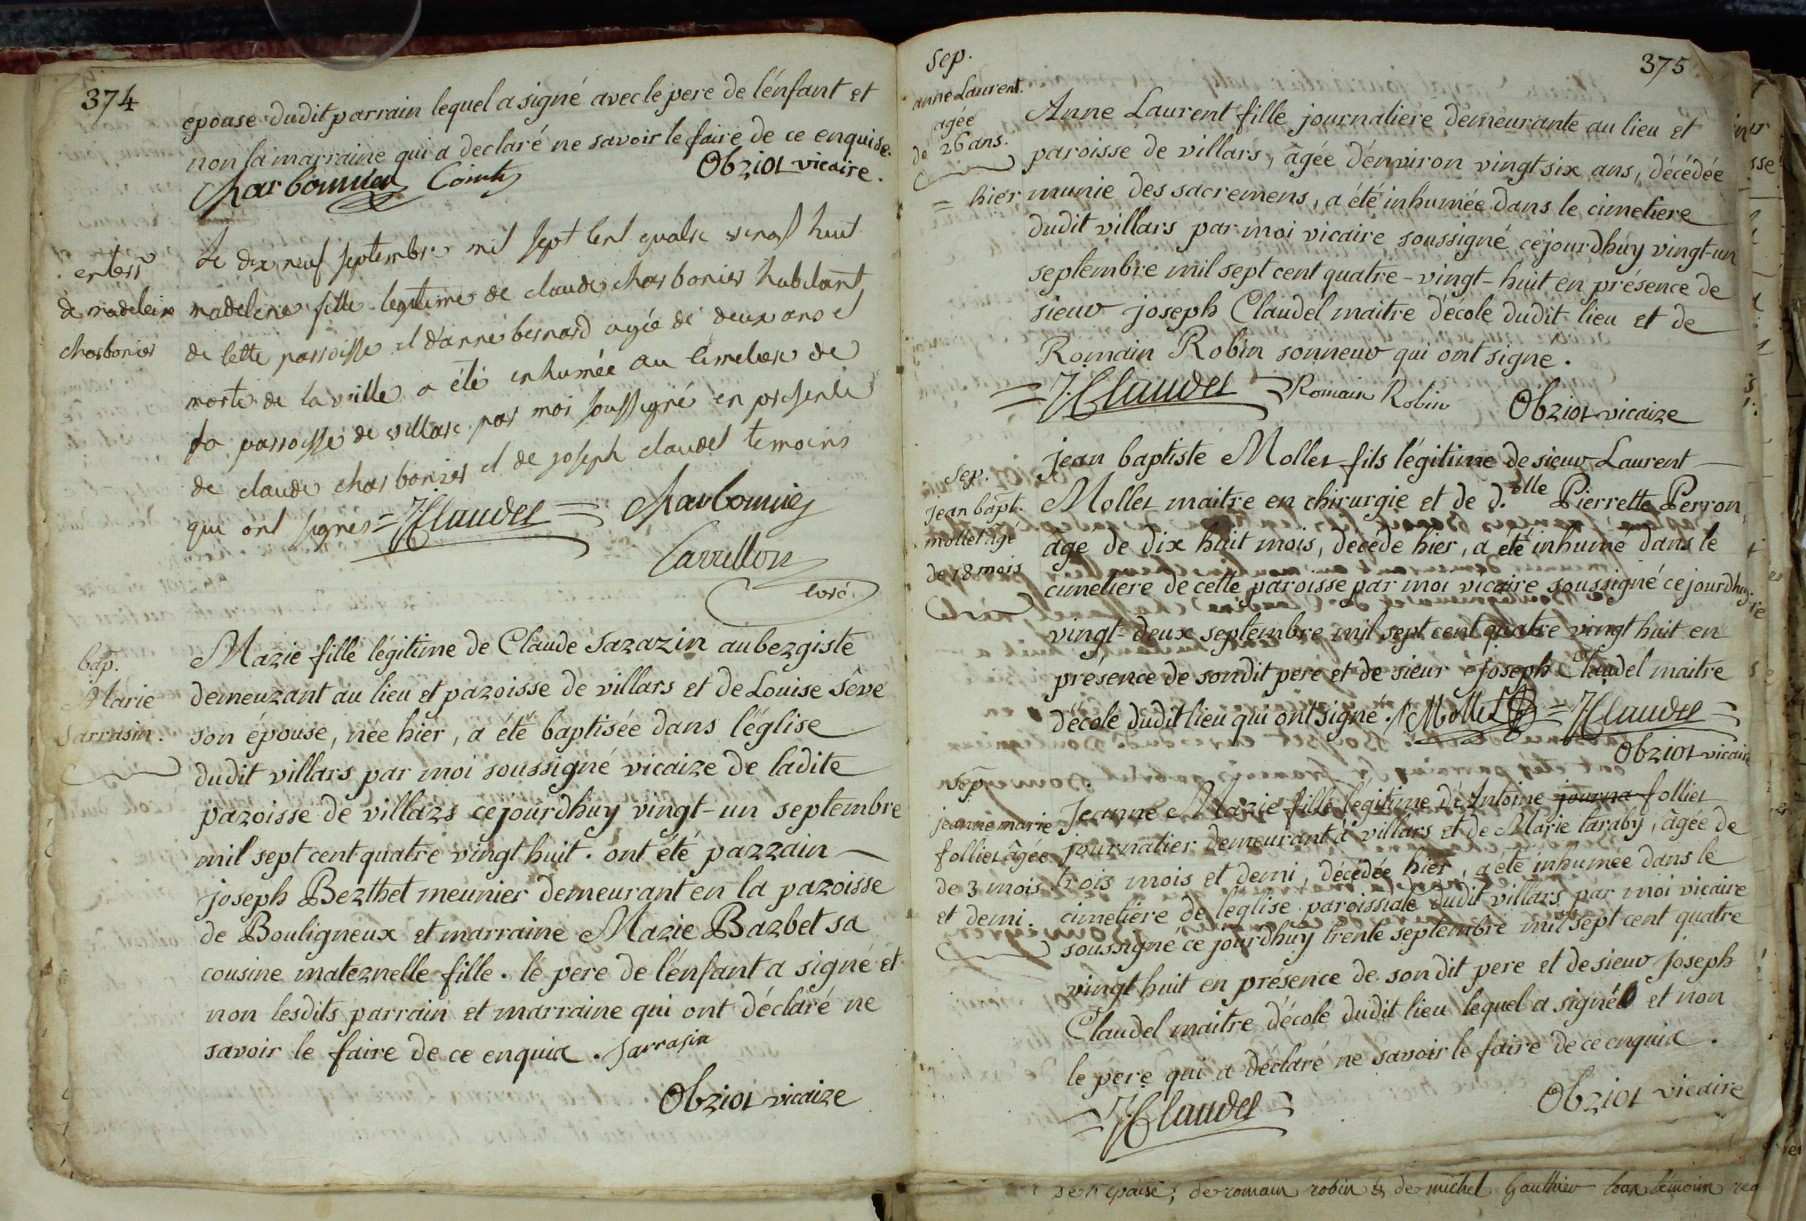 374
épouse dudit parrain lequel a signé avec le pere de l'énfant et
non la marraine qui a declaré ne savoir le faire de ce enquise.
Charbonnier Comte Obriot vicaire.
enterr
de madeleine
charbonier
Le dix neuf septembre mil sept cent quatre vingt huit
madeleine fille legitime de claude charbonier habitant
de cette parroisse et d'anne bernard agée de deux ans et
morte de la veille a été inhumée au cimetiere de
la parroisse de villars par moi soussigné en presence
de claude charbonier et de joseph claudel temoins
qui ont signés = J Claudel = Charbonnier
Carrillon
curé.
bap.
Marie
Sarrasin.
Marie fille légitime de Claude Sarazin aubergiste
demeurant au lieu et paroisse de villars et de Louise Séve
son épouse, née hier, a été baptisée dans l'église
dudit villars par moi soussigné vicaire de ladite
paroisse de villars cejourdhuy vingt-un septembre
mil sept cent quatre vingt huit. ont été parrain
joseph Berthet meunier demeurant en la paroisse
de Bouligneux et marraine Marie Barbet sa
cousine maternelle fille. le pere de l'énfant a signé et
non lesdits parrain et marraine qui ont déclaré ne
savoir le faire de ce enquis. Sarrasin
Obriot vicaire
375
Sep.
anne Laurent.
agée
de 26 ans.
Anne Laurent fille journaliere demeurante au lieu et
paroisse de villars, âgée d'énviron vingt six ans, décédée
= hier munie des sacremens, a été inhumée dans le cimetiere
dudit villars par moi vicaire soussigné cejourdhuy vingt-un
septembre mil sept cent quatre-vingt-huit en présence de
sieur joseph Claudel maitre d'école dudit lieu et de
Romain Robin sonneur qui ont signe.
= J Claudel = Romain Robin Obriot vicaire
Sep.
Jean bapt.
mollet agé
de 18 mois
jean baptiste Mollet fils légitime de sieur Laurent
Mollet maitre en chirurgie et de d.elle Pierrette Perron,
age de dix huit mois, decede hier, a été inhumé dans le
cimetiere de cette paroisse par moi vicaire soussigné cejourdhuy
vingt-deux septembre mil sept cent quatre vingt huit en
présence de sondit pere et de sieur joseph Claudel maitre
d'école dudit lieu qui ont signé. Mollet = J Claudel =
Obriot vicaire
Sep.
jeanne marie
follier âgée
de 3 mois
et demi.
Jeanne Marie fille légitime d'Antoine journa follier
journalier demeurant a villars et de Marie taraby, âgée de
trois mois et demi, décédée hier, a été inhumée dans le
cimetiére de l'eglise paroissiale dudit villars par moi vicaire
soussigné ce jourdhuy trente septembre mil sept cent quatre
vingt huit en présence de son dit pere et de sieur Joseph
Claudel maitre d'école dudit lieu lequel a signé et non
le pere qui a déclaré ne savoir le faire de ce enquis.
= J Claudel = Obriot vicaire
de romain robin & de michel Gauthier tous témoins